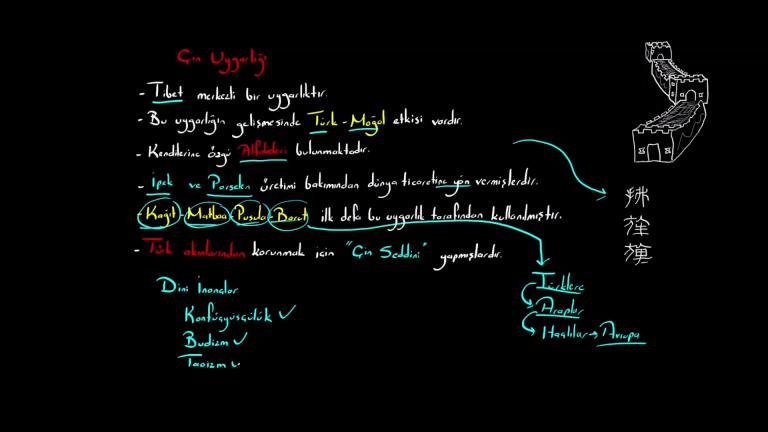 Çin Uygarlığı
- Tibet merkezli bir uygarlıktır.
- Bu uygarlığın gelişmesinde Türk - Moğol etkisi vardır.
- Kendilerine özgü Alfabeleri bulunmaktadır.
- İpek ve Porselen üretimi bakımından dünya ticaretine yön vermişlerdir.
- Kağıt - Matbaa - Pusula - Barut ilk defa bu uygarlık tarafından kullanılmıştır.
- Türk akınlarından korunmak için "Çin Seddini" yapmışlardır.
Dini İnançlar
Konfüçyüsçülük ✓
Budizm ✓
Taoizm ✓
Türklere
Araplar
Haçlılar → Avrupa